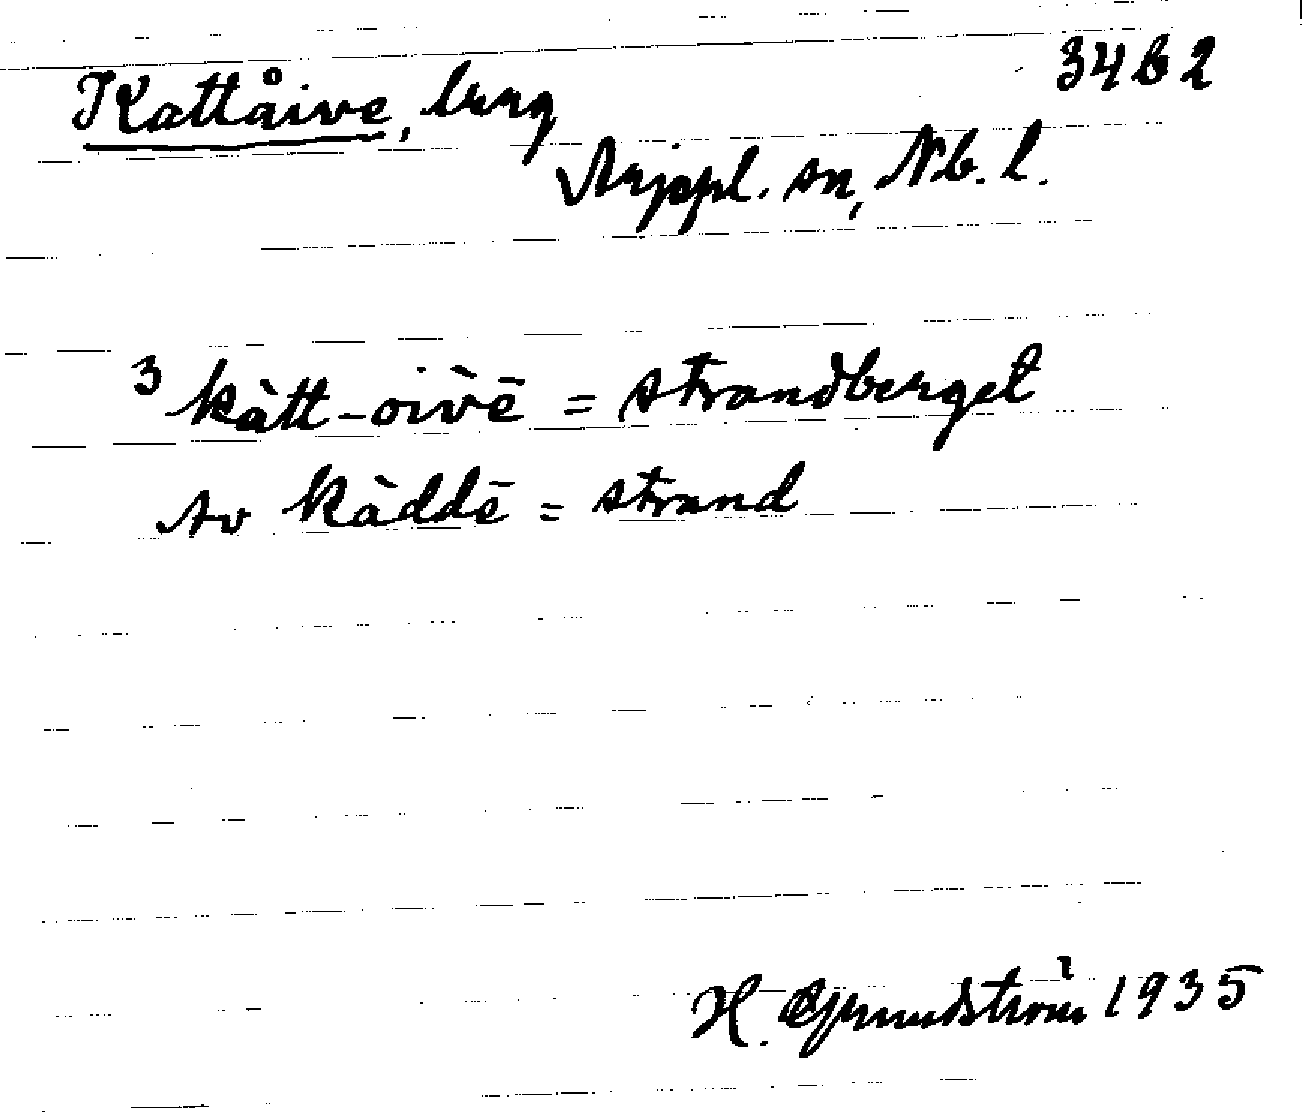 Kattåive, berg 34 b 2
Arjepl. sn, Nb. l.
3 kàtt-oìvē = strandberget
Av kàddē = strand
H. Grundström 1935